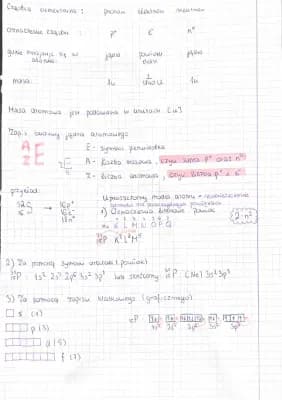 Cząstka elementarna: proton elektron neutron
oznaczenie cząstki: p⁺ e⁻ n⁰
gdzie znajduje się w atomie: jądro powłoki jądro
masa: 1u 1/1840 u 1u
Masa atomowa jest podawana w unitach [u]
Zapis budowy jądra atomowego:
A Z E
E - symbol pierwiastka
A - liczba masowa, czyli suma p⁺ oraz n⁰
Z - liczba atomowa, czyli liczba p⁺ i e⁻
przykład:
32 16 S → 16p⁺ 16e⁻
Uproszczony model atomu
1) Oznaczenia literowe powłok 2·n²
K L M N O P Q
15P K² L⁸ M⁵
2) Za pomocą symboli
15P: 1s² 2s² 2p⁶ 3s² 3p³ lub skrócony 15P: (Ne) 3s² 3p³
3) Za pomocą zapisu klatkowego (graficznego)
s (1)
p (3)
d (5)
f (7)
15P
1s² 2s² 2p⁶ 3s² 3p³